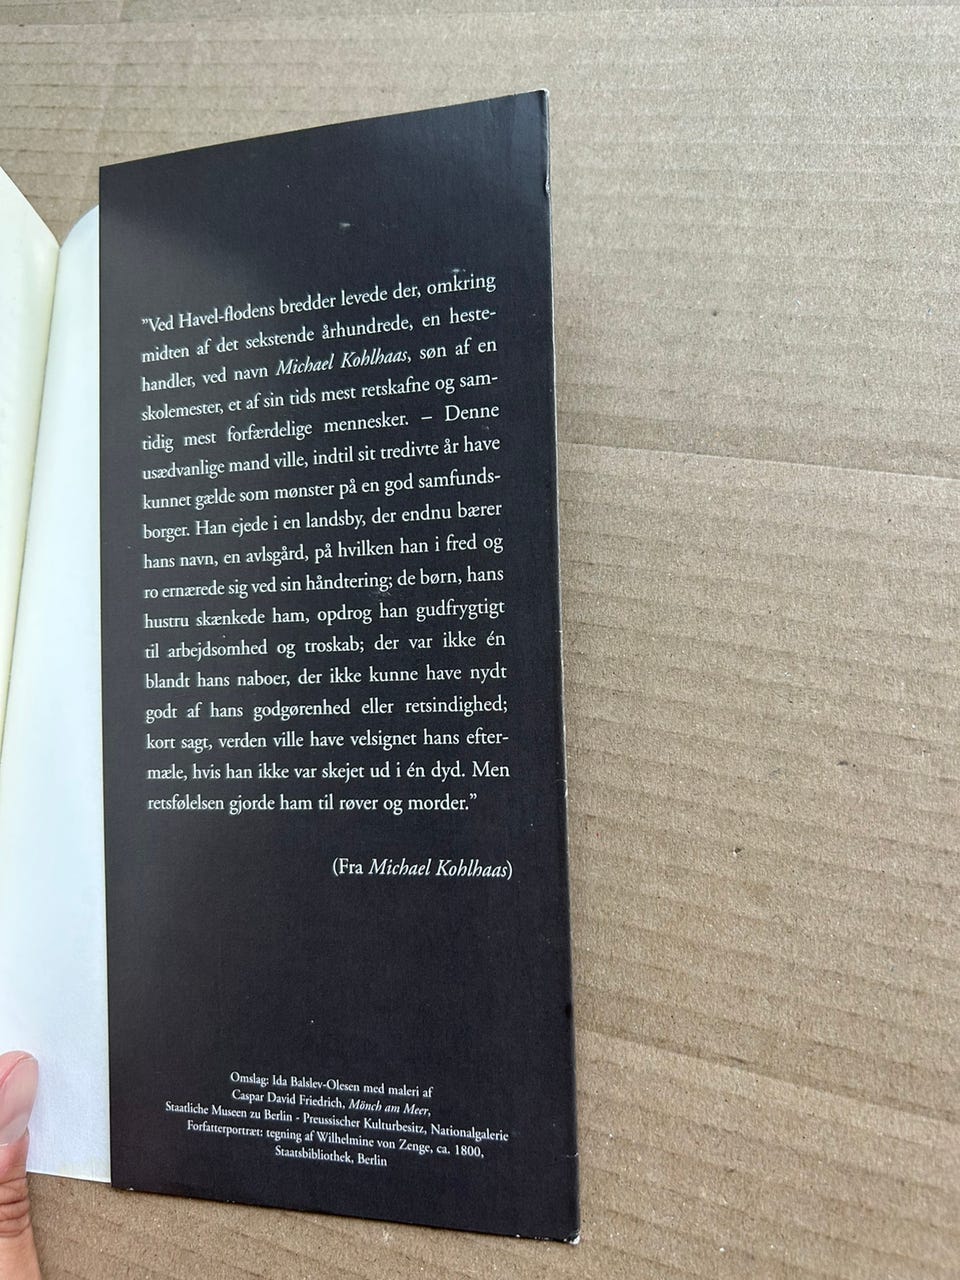 ”Ved Havel-flodens bredder levede der, omkring
midten af det sekstende århundrede, en heste-
handler, ved navn Michael Kohlhaas, søn af en
skolemester, et af sin tids mest retskafne og sam-
tidig mest forfærdelige mennesker. – Denne
usædvanlige mand ville, indtil sit tredivte år have
kunnet gælde som mønster på en god samfunds-
borger. Han ejede i en landsby, der endnu bærer
hans navn, en avlsgård, på hvilken han i fred og
ro ernærede sig ved sin håndtering; de børn, hans
hustru skænkede ham, opdrog han gudfrygtigt
til arbejdsomhed og troskab; der var ikke én
blandt hans naboer, der ikke kunne have nydt
godt af hans godgørenhed eller retsindighed;
kort sagt, verden ville have velsignet hans efter-
mæle, hvis han ikke var skejet ud i én dyd. Men
retsfølelsen gjorde ham til røver og morder.”
(Fra Michael Kohlhaas)
Omslag: Ida Balslev-Olesen med maleri af
Caspar David Friedrich, Mönch am Meer,
Staatliche Museen zu Berlin - Preussischer Kulturbesitz, Nationalgalerie
Forfatterportræt: tegning af Wilhelmine von Zenge, ca. 1800,
Staatsbibliothek, Berlin